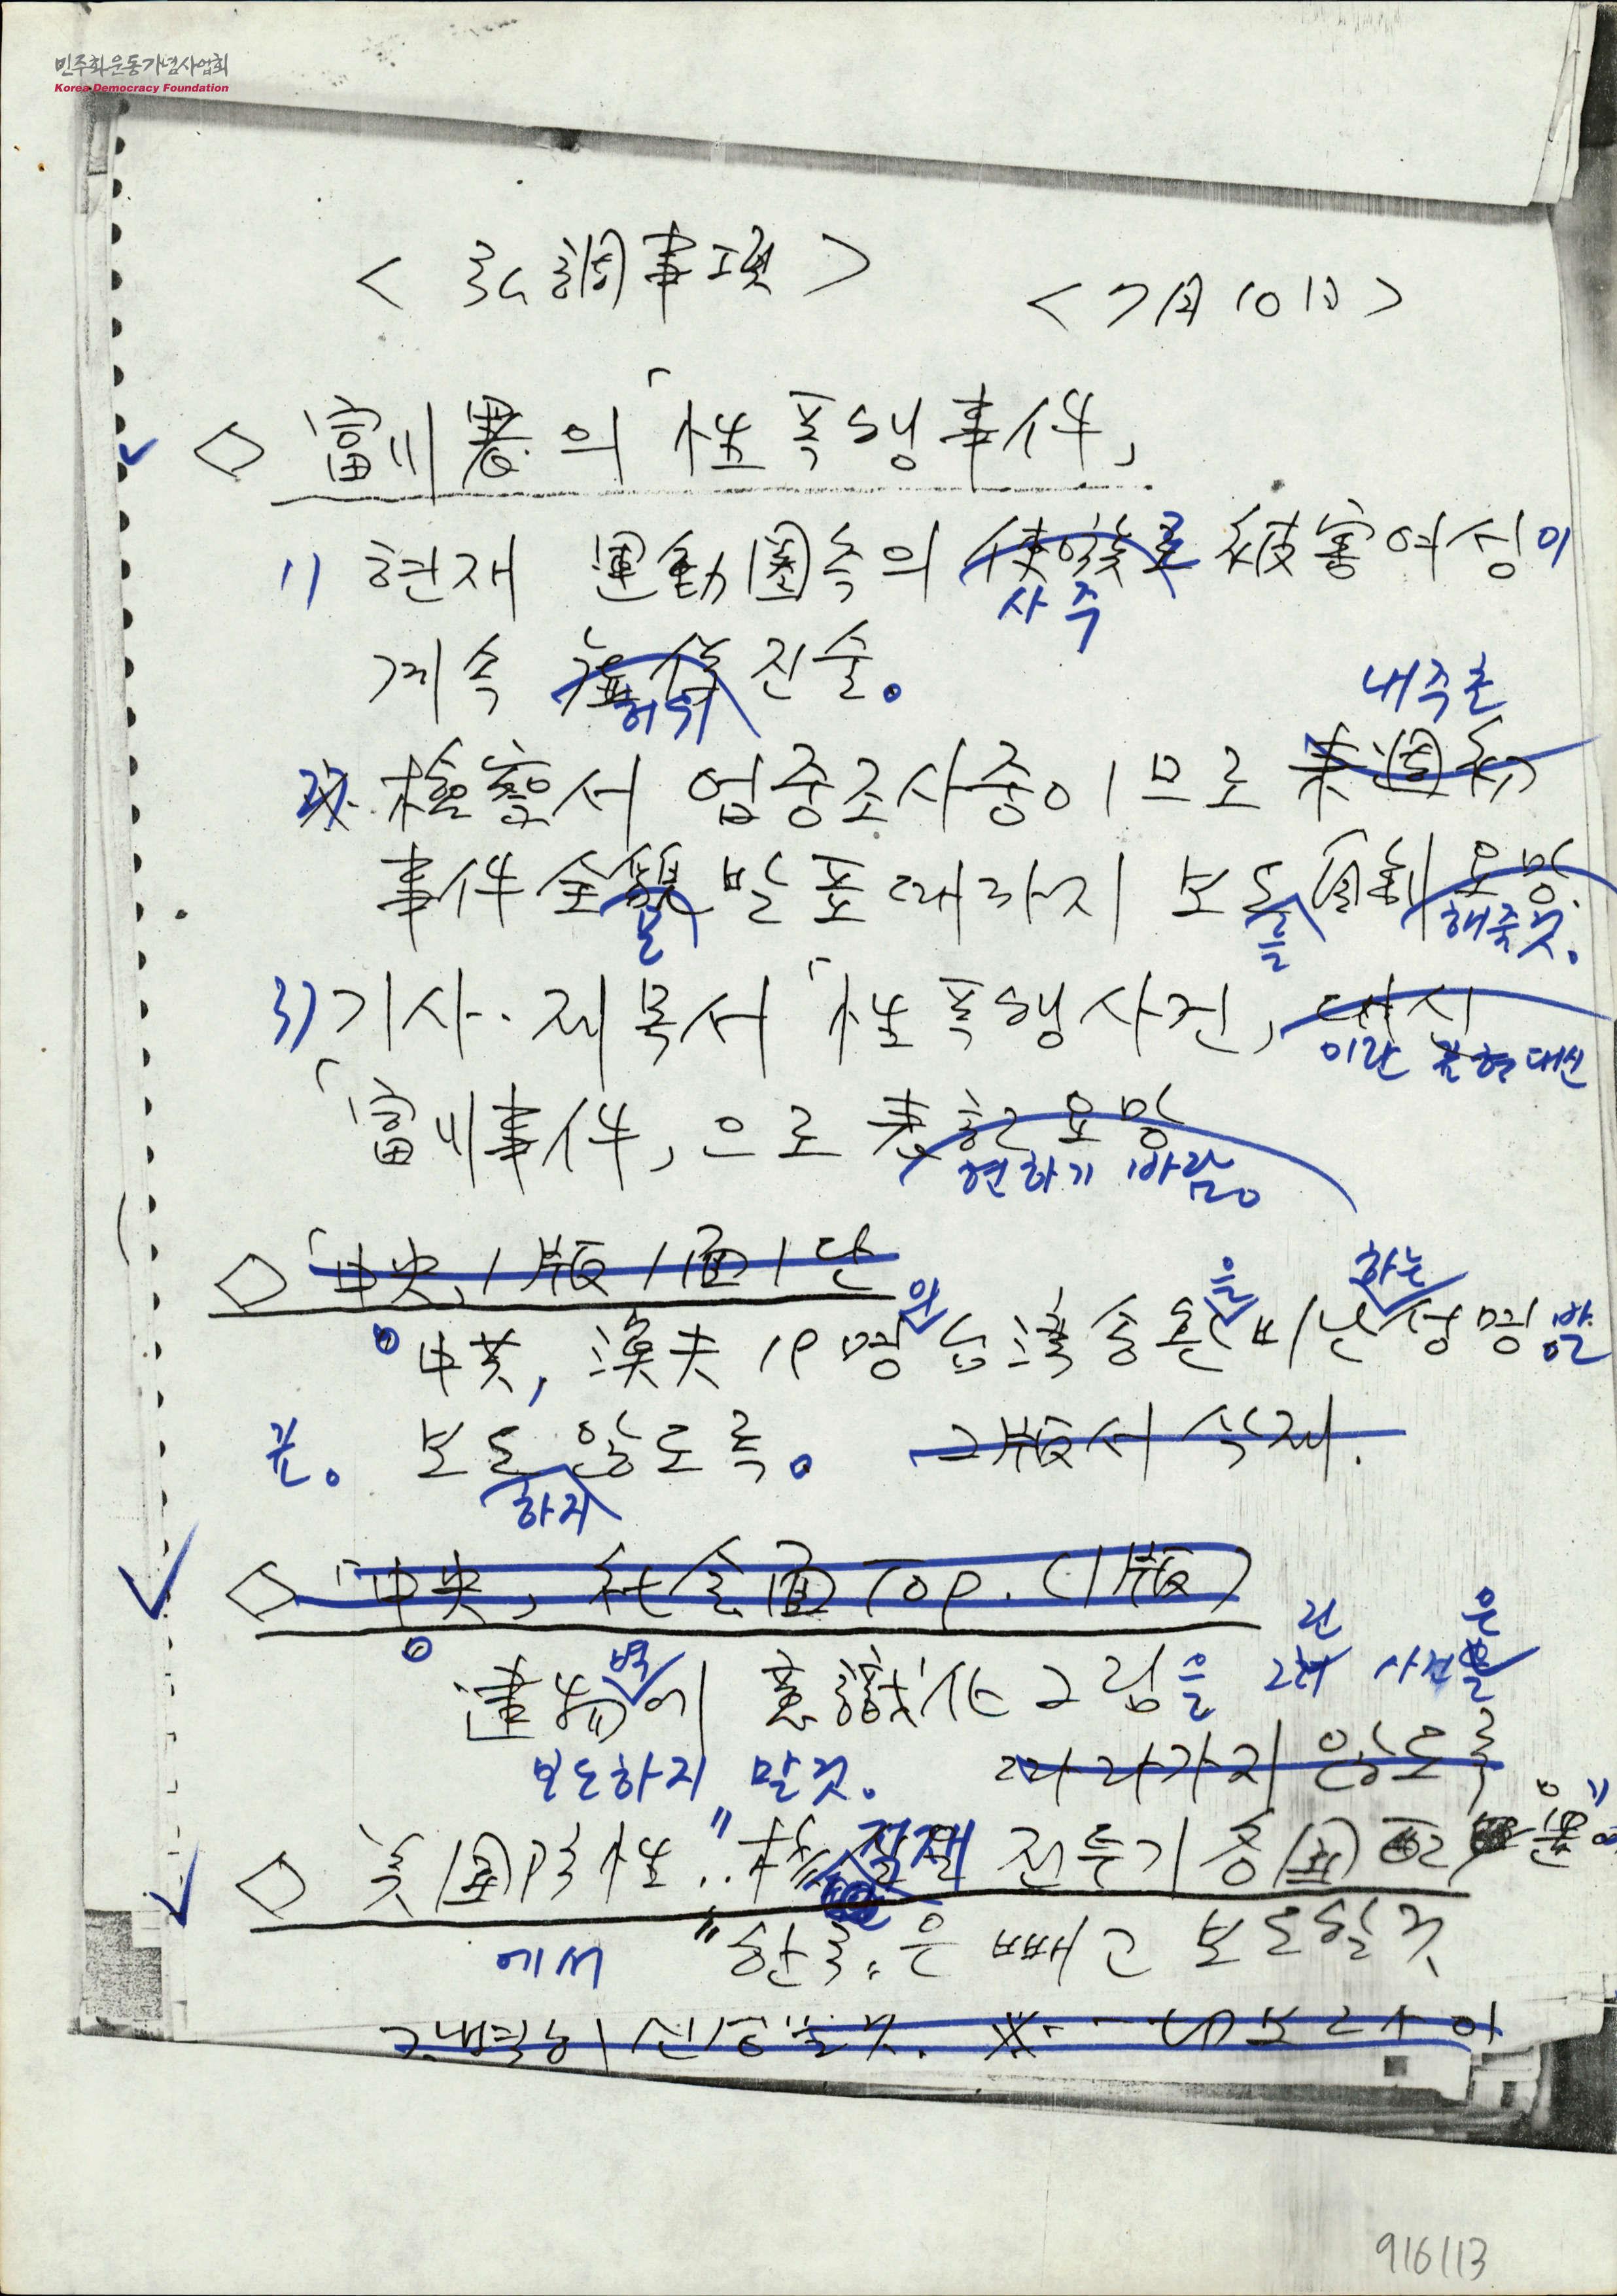 민주화운동기념사업회
Korea Democracy Foundation
< 弘調事項 >
< 7月 10日 >
◇ 富川署의 「性폭행事件」
1) 현재 運動圈측의 使嗾로 被害여성이
사주
계속 虛偽진술。
허위
내주초
2) 檢察서 엄중조사중이므로 来週初
事件全貌 발표때까지 보도 自制 요망.
를 해줄것。
3) 기사·제목서 「性폭행사건」 대신
이란 표현 대신
「富川事件」으로 表記 요망
현하기 바람。
◇ 「中央」 1版 1面 1단
의 을 하는
中共, 漁夫 19명 台湾송환 비난 성명 발
표。 보도 않도록。 2版서 삭제.
하지
◇ 「中央」 社会面 Top. (1版)
벽 은
建物에 意識化 그림을 그린 사건
보도하지 말것。 따라가지 않도록
◇ 美国防性 "核 적재 전투기 各国 配
에서 "한국"은 빼고 보도할 것
916113